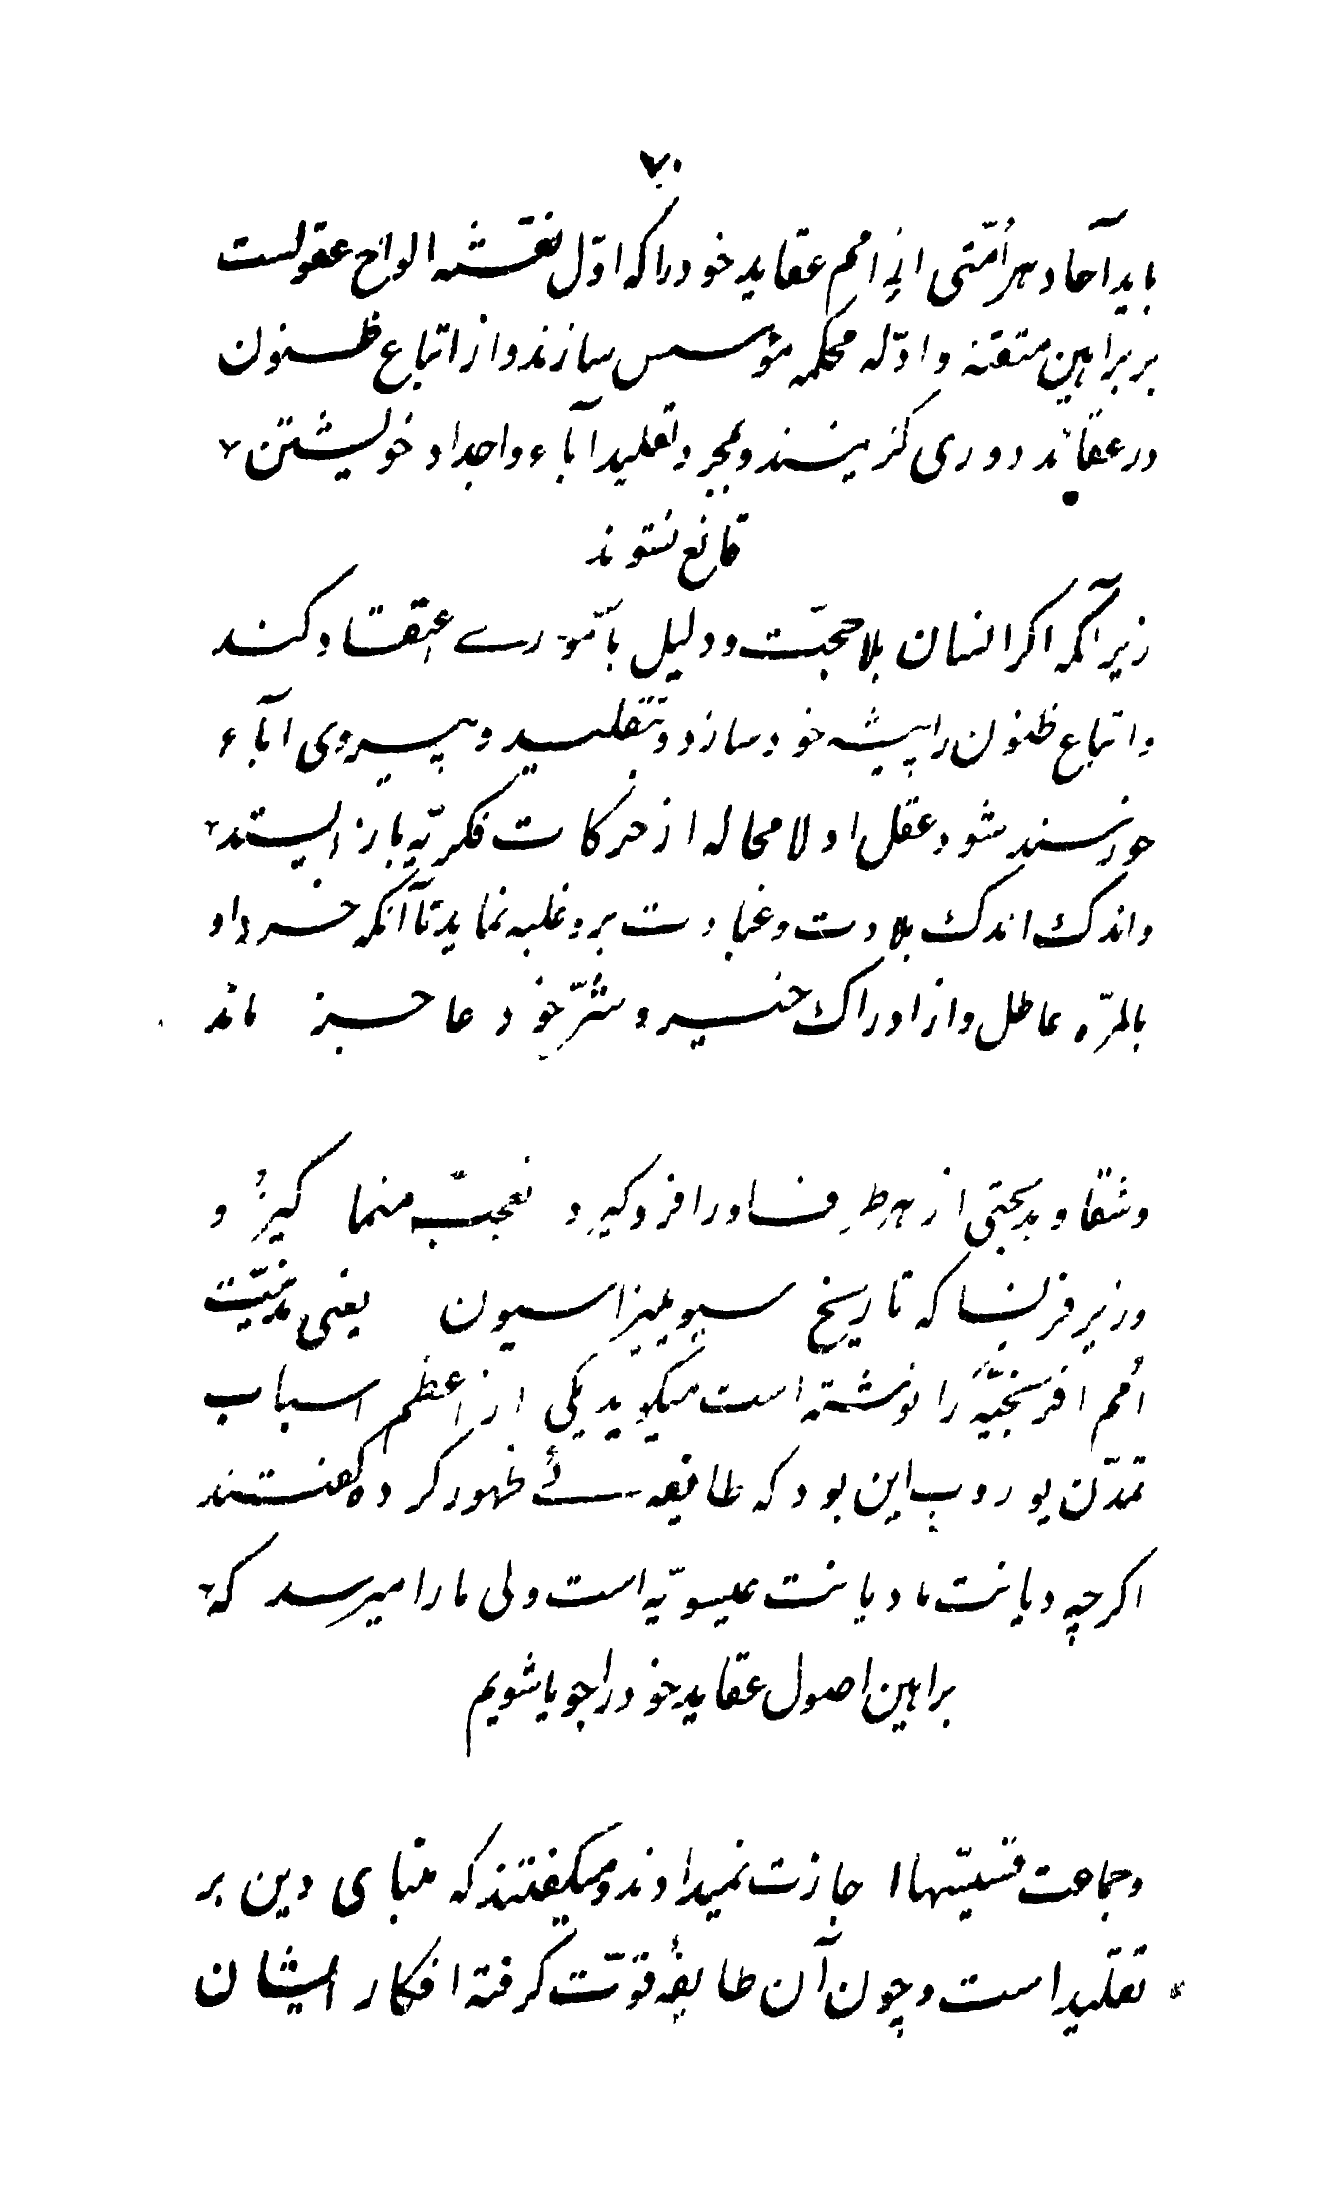 ۷۰
باید آحاد هر اُمّتی از امم عقاید خود را که اوّل نقشه الواح عقولست
بر براهین متقنه و ادّله محکمه مؤسس سازند و از اتباع ظنون
در عقائد دوری گزینند و بمجرد تقلید آباء و اجداد خویشتن
قانع نشوند
زیرآنکه اگر انسان بلا حجّت و دلیل بامورے اعتقاد کند
و اتباع ظنون را پیشه خود سازد و بتقلید و پیروی آباء
خورسند شود عقل او لا محاله از حرکات فکریّه باز ایستد
و اندک اندک بلادت و غباوت برو غلبه نماید تا آنکه خرد او
بالمرّه عاطل و از ادراک خیر و شرّ خود عاجز ماند
و شقا و بدبختی از هر طرف او را فرو گیرد تعجبّ منما گیزُ و
وزیر فرنسا که تاریخ سیویلیزاسیون یعنی مدنیّت
اُمم افرنجیّه را نوشته است میگوید یکی از اعظم اسباب
تمدّن یوروپ این بود که طائفهٔ ئے ظهور کرده گفتند
اگرچه دیانت ما دیانت عیسویّه است ولی ما را میرسد که
براهین اصول عقاید خود را جویا شویم
و جماعت قسیّسها اجازت نمیدادند و میگفتند که بنای دین بر
تقلید است و چون آن طایفهٔ قوّت گرفته افکار ایشان